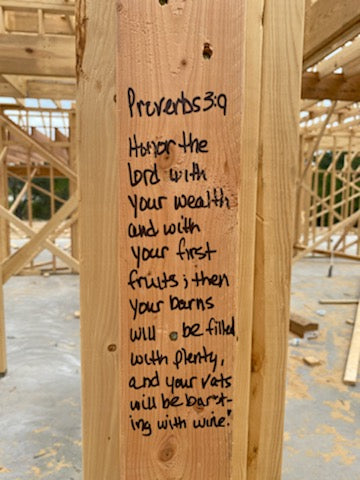 Proverbs 3:9
Honor the
lord with
your wealth
and with
your first
fruits; then
your barns
will be filled
with plenty,
and your vats
will be barst-
ing with wine."